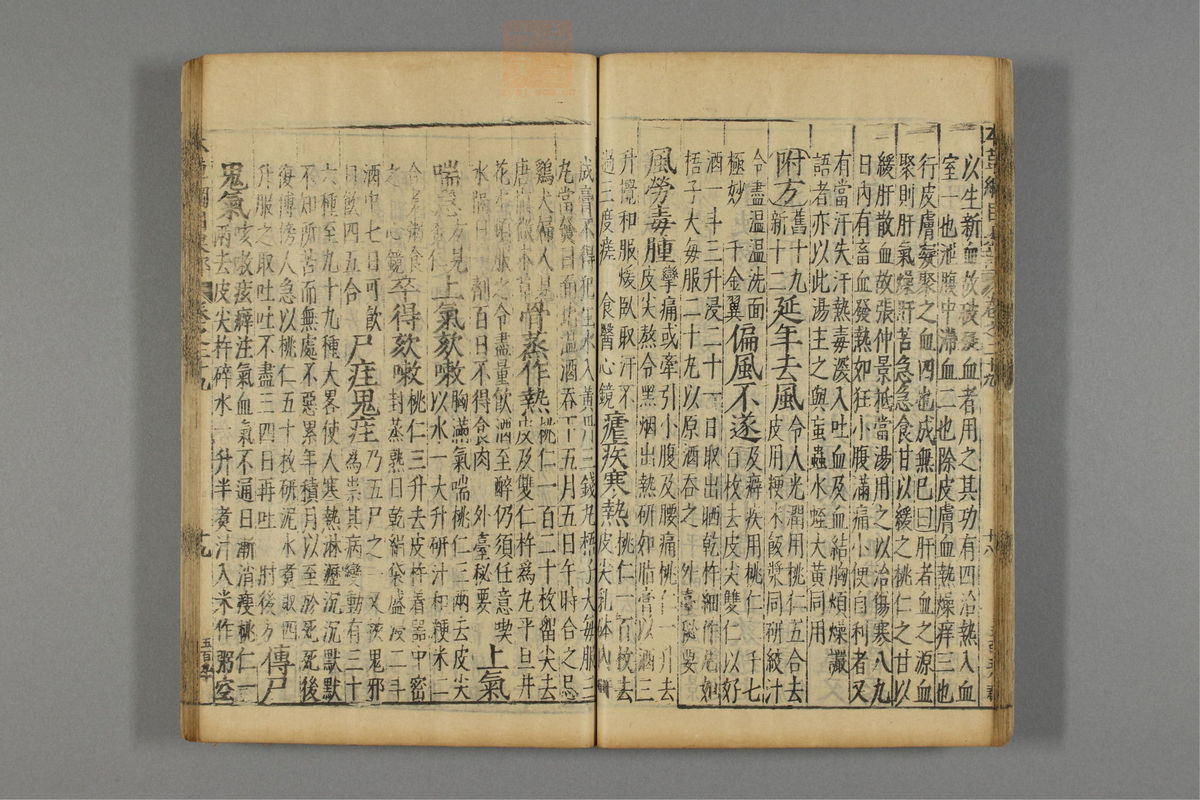 以生新血故破瘀血者用之其功有四治熱入血
室一也泄腹中滯血二也除皮膚血熱燥痒三也
行皮膚凝聚之血四也成無已曰肝者血之源血
聚則肝氣燥肝苦急急食甘以緩之桃仁之甘以
緩肝散血故張仲景抵當湯用之以治傷寒八九
日內有畜血發熱如狂小腹滿痛小便自利者又
有當汗失汗熱毒深入吐血及血結胸煩燥讝
語者亦以此湯主之與䖟蟲水蛭大黃同用
附方舊十九新十二延年去風令人光潤用桃仁五合去皮用粳米飯漿同研絞汁
令盡溫溫洗面極妙千金翼偏風不遂及癖疾用桃仁二千七百枚去皮尖雙仁以好
酒一斗三升浸二十一日取出晒乾杵細作丸如梧子大每服二十九以原酒吞之外臺秘要
風勞毒腫攣痛或牽引小腹及腰痛桃仁一升去皮尖熬令黑烟出熱研如脂膏以酒三
升攪和服煖臥取汗不過三度瘥食醫心鏡瘧疾寒熱桃仁一百枚去皮尖乳鉢內研
成膏不得犯生水入黃丹三錢丸梧子大每服三
九當發日面北溫酒吞下五月五日午時合之忌
鷄犬婦人見唐慎微本草骨蒸作熱桃仁一百二十枚留尖去皮及雙仁杵爲丸平旦井
花水頓服之令盡量飲酒至醉仍須任意喫水隔日一劑百日不得食肉外臺秘要上氣
喘急方見杏仁上氣欬嗽胸滿氣喘桃仁三兩去皮尖以水一大升研汁和粳米二
合煮粥食之心鏡卒得欬嗽桃仁三升去皮杵著器中密封蒸熟日乾絹袋盛浸二斗
酒中七日可飲日飲四五合尸疰鬼疰乃五尸之一又挾鬼邪爲祟其病變動有三十
六種至九十九種大畧使人寒熱淋瀝沉沉默默
不知所苦而無處不惡累年積月以至於死死後
復傳傍人急以桃仁五十枚研泥水煮取四
升服之取吐吐不盡三四日再吐肘後方傳尸
鬼氣咳嗽痃癖注氣血氣不通日漸消瘦桃仁一兩去皮尖杵碎水一升半煮汁入米作粥空
十九
五百